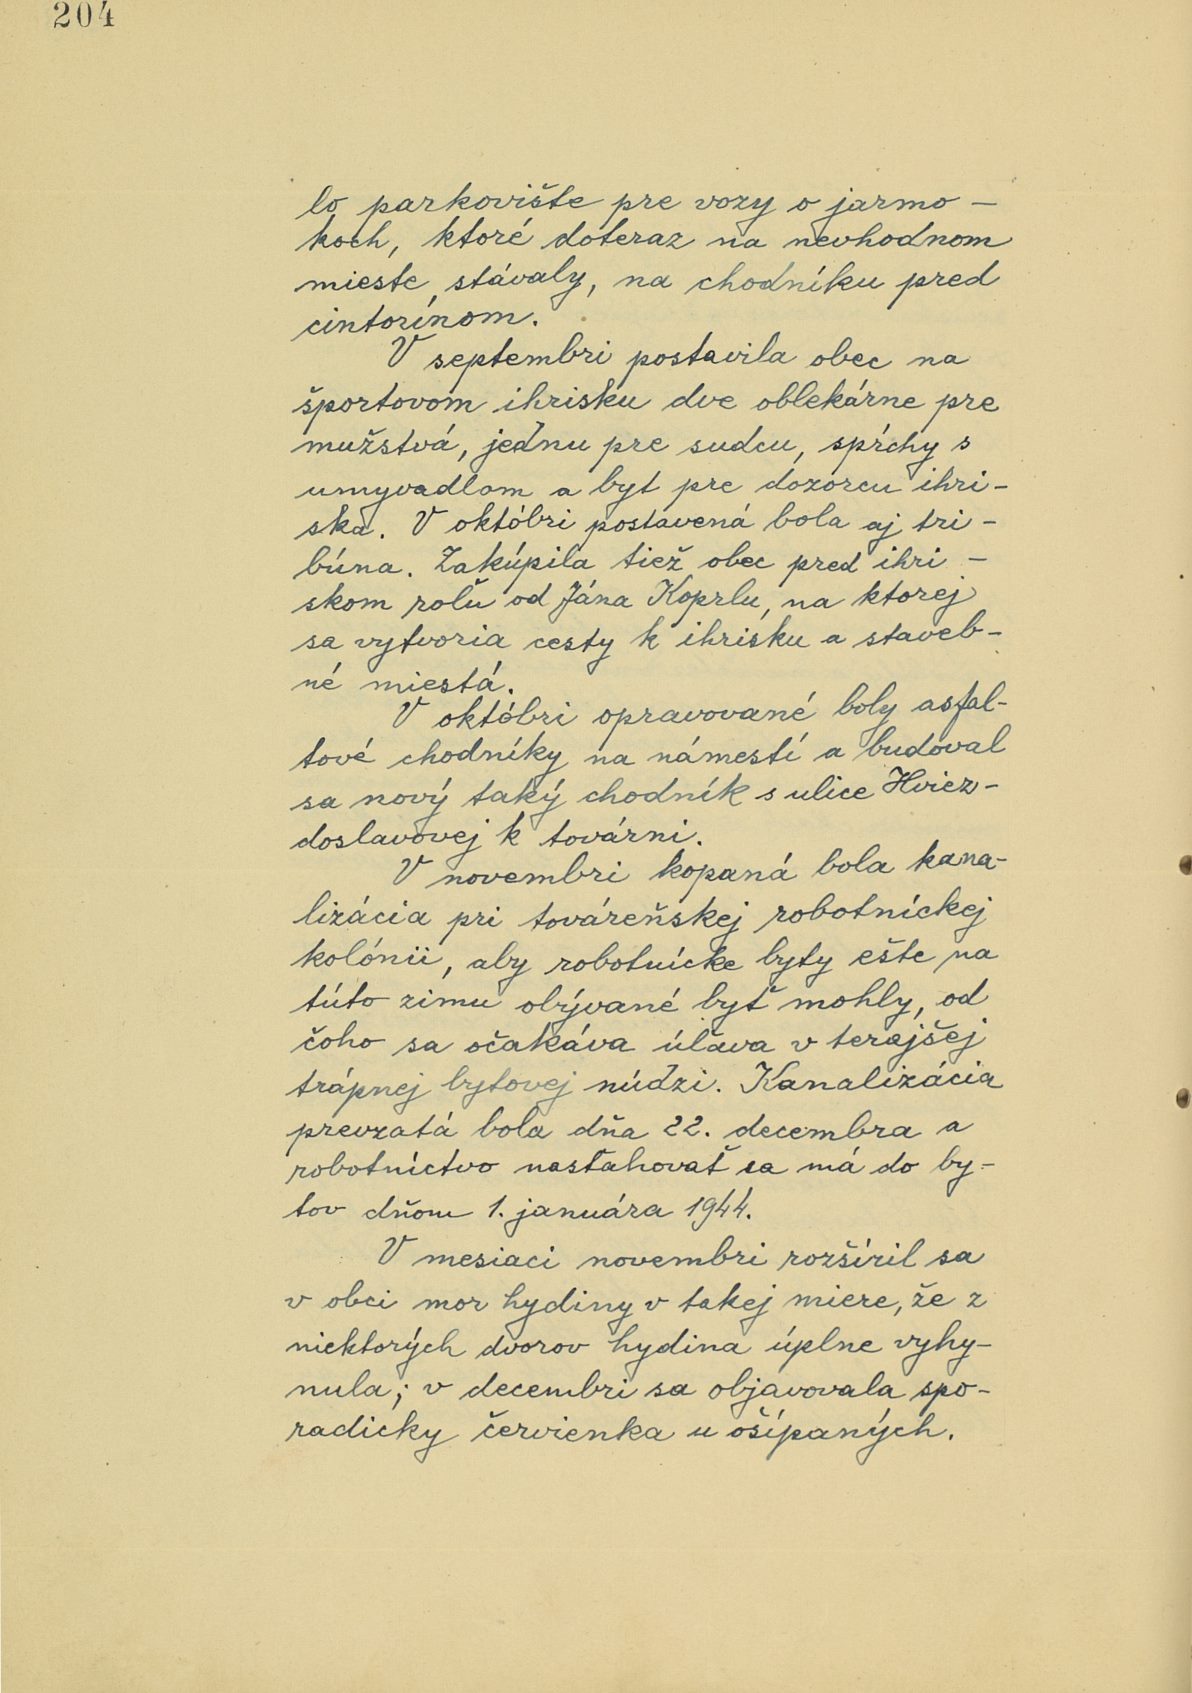 204
lo parkovište pre vozy o jarmo –
koch, ktoré doteraz na nevhodnom
mieste stávaly, na chodníku pred
cintorínom.
V septembri postavila obec na
športovom ihrisku dve oblekárne pre
mužstvá, jednu pre sudcu, spŕchy s
umyvadlom a byt pre dozorcu ihri-
ska. V októbri postavená bola aj tri-
búna. Zakúpila tiež obec pred ihri –
skom roľu od Jána Koprlu, na ktorej
sa vytvoria cesty k ihrisku a staveb-
né miestá.
V októbri opravované boly asfal-
tové chodníky na námestí a budoval
sa nový taký chodník s ulice Hviez-
doslavovej k továrni.
V novembri kopaná bola kana-
lizácia pri továreňskej robotníckej
kolónii, aby robotnícke byty ešte na
túto zimu obývané byť mohly, od
čoho sa očakáva úľava v terajšej
trápnej bytovej núdzi. Kanalizácia
prevzatá bola dňa 22. decembra a
robotníctvo nasťahovať sa má do by-
tov dňom 1. januára 1944.
V mesiaci novembri rozšíril sa
v obci mor hydiny v takej miere, že z
niektorých dvorov hydina úplne vyhy-
nula; v decembri sa objavovala spo-
radicky červienka u ošípaných.